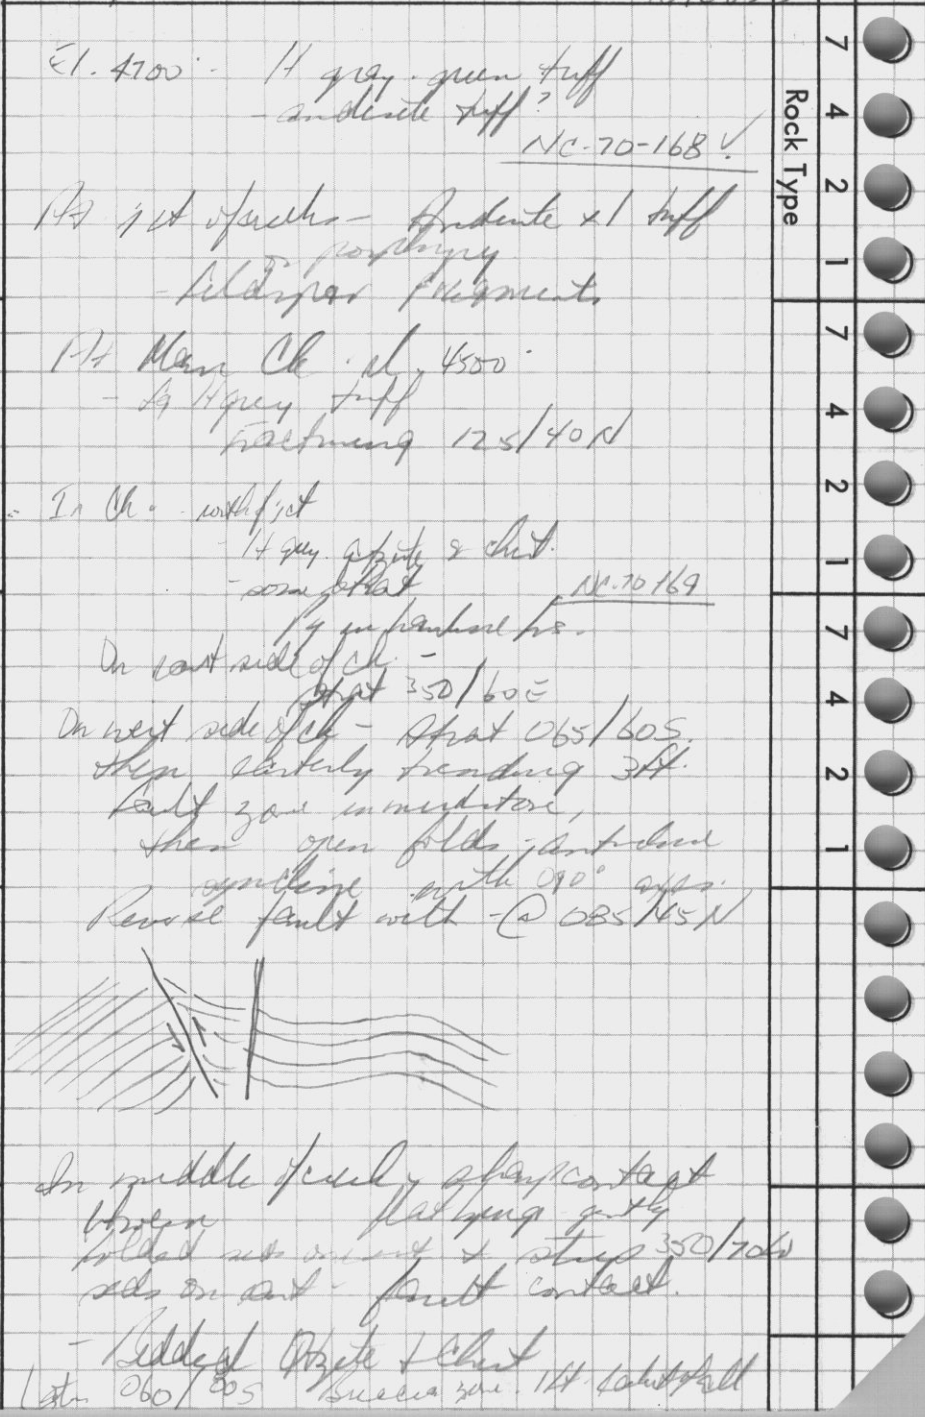 El. 4700' - lt gray-green tuff
- andesite tuff?
NC-70-168 ✓
At jct of creeks - Andesite xl tuff
or porphyry
- feldspar fragments
At Main Ck 4500'
- fg lt grey tuff
Fracturing 125/40N
In Ck. north of jct
- lt grey qtzite & chert.
- some strat
NC-70-169
Py in
On east side of ck -
strat 350/60E
On west side of ck - strat 065/60S.
then easterly trending 3ft.
fault zone in mudstone,
then open folds - anticline
syncline with 090° axes.
Reverse fault with - @ 085/45N
In middle of creek, sharp contact
between flat lying gently
folded seds on west & steep 350/70W
seds on east - fault contact.
- Bedded Qtzite + Chert
Later 060/80S Breccia zone. 1ft
Rock Type
7
4
2
1
7
4
2
1
7
4
2
1